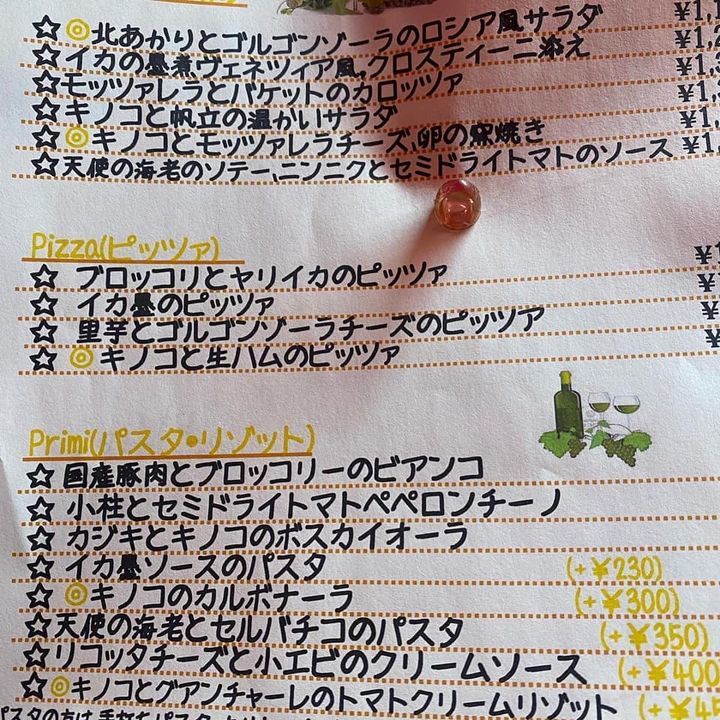 ☆◎北あかりとゴルゴンゾーラのロシア風サラダ ¥1,
☆イカの墨煮ヴェネツィア風,クロスティーニ添え ¥1,
☆モッツァレラとバケットのカロッツァ ¥1,
☆キノコと帆立の温かいサラダ ¥1,
☆◎キノコとモッツァレラチーズ,卵の窯焼き ¥1,
☆天使の海老のソテー,ニンニクとセミドライトマトのソース ¥1,
Pizza(ピッツァ)
☆ ブロッコリとヤリイカのピッツァ ¥1
☆ イカ墨のピッツァ ¥
☆ 里芋とゴルゴンゾーラチーズのピッツア ¥
☆ ◎キノコと生ハムのピッツァ ¥
Primi(パスタ•リゾット)
☆ 国産豚肉とブロッコリーのビアンコ
☆ 小柱とセミドライトマトペペロンチーノ
☆ カジキとキノコのボスカイオーラ
☆ イカ墨ソースのパスタ (+¥230)
☆ ◎キノコのカルボナーラ (+¥300)
☆天使の海老とセルバチコのパスタ (+¥350)
☆リコッタチーズと小エビのクリームソース (+¥400
☆◎キノコとグアンチャーレのトマトクリームリゾット (+¥4